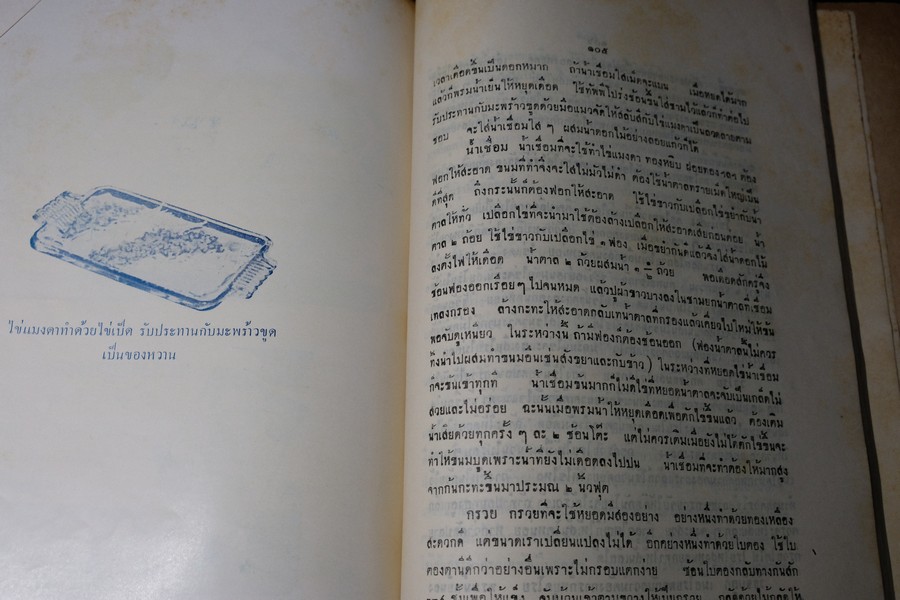 ไข่แมงดาทำด้วยไข่เป็ด รับประทานกับมะพร้าวขูด
เป็นของหวาน
๑๐๕
เวลาเดือดขึ้นเป็นดอกหมาก ถ้าน้ำเชื่อมใสเม็ดจะแบน เมื่อหยอดได้มาก
แล้วก็พรมน้ำเย็นให้หยุดเดือด ใช้ทัพพีโปร่งช้อนขึ้นใส่ชามไว้แล้วก็ทำต่อไป
รับประทานกับมะพร้าวขูดด้วยมือแมวจัดให้สลับสีกับไข่แมงดาเป็นลวดลายตาม
ชอบ จะใส่น้ำเชื่อมใส ๆ ผสมน้ำดอกไม้อย่างลอยแก้วก็ได้
น้ำเชื่อม น้ำเชื่อมที่จะใช้ทำไข่แมงดา ทองหยิบ ฝอยทอง ฯลฯ ต้อง
ฟอกให้สะอาด ขนมที่ทำจึงจะใสไม่มัวไม่ดำ ต้องใช้น้ำตาลทรายเม็ดใหญ่เป็น
ดีที่สุด ถึงกระนั้นก็ต้องฟอกให้สะอาด ใช้ไข่ขาวกับเปลือกไข่ขยำกับน้ำ
ตาลให้ทั่ว เปลือกไข่ที่จะนำมาใช้ต้องล้างเปลือกให้สะอาดเสียก่อนต่อย น้ำ
ตาล ๒ ถ้อย ใช้ไข่ขาวกับเปลือกไข่ ๑ ฟอง เมื่อขยำกันดีแล้วจึงใส่น้ำดอกไม้
ลงตั้งไฟให้เดือด น้ำตาล ๒ ถ้วยผสมน้ำ ๑ ๑/๒ ถ้วย พอเดือดสักครู่จึง
ช้อนฟองออกเรื่อยๆ ไปจนหมด แล้วปูผ้าขาวบางลงในชามยกน้ำตาลที่เชื่อม
เทลงกรอง ล้างกะทะให้สะอาดกลับเทน้ำตาลที่กรองแล้วเคี่ยวไปใหม่ให้ข้น
พอจับดูเหนียว ในระหว่างนี้ ถ้ามีฟองก็ต้องช้อนออก (ฟองน้ำตาลนี้ไม่ควร
ทิ้งนำไปผสมทำขนมอื่นเช่นสังขยาและกับข้าว) ในระหว่างที่หยอดไข่น้ำเชื่อม
ก็จะข้นเข้าทุกที น้ำเชื่อมข้นมากก็ไม่ดีไข่ที่หยอดน้ำตาลจะจับเป็นเกล็ดไม่
สวยและไม่อร่อย ฉะนั้นเมื่อพรมน้ำให้หยุดเดือดเพื่อตักไข่ขึ้นแล้ว ต้องเติม
น้ำเสียด้วยทุกครั้ง ๆ ละ ๒ ช้อนโต๊ะ แต่ไม่ควรเติมเมื่อยังไม่ได้ตักไข่ขึ้นจะ
ทำให้ขนมบูดเพราะน้ำที่ยังไม่เดือดลงไปปน น้ำเชื่อมที่จะทำต้องให้มากสูง
จากก้นกะทะขึ้นมาประมาณ ๒ นิ้วฟุต
กรวย กรวยที่จะใช้หยอดมีสองอย่าง อย่างหนึ่งทำด้วยทองเหลือง
สะดวกดี แต่ขนาดเราเปลี่ยนแปลงไม่ได้ อีกอย่างหนึ่งทำด้วยใบตอง ใช้ใบ
ตองตานีดีกว่าอย่างอื่นเพราะไม่กรอบแตกง่าย ซ้อนใบตองกลับทางกันสัก